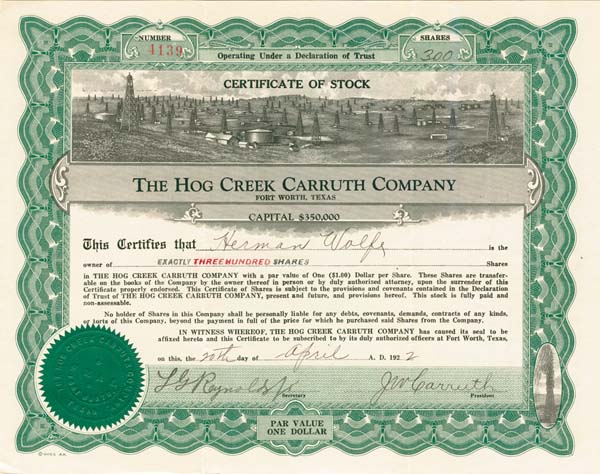 NUMBER
4139
SHARES
300
Operating Under a Declaration of Trust
CERTIFICATE OF STOCK
THE HOG CREEK CARRUTH COMPANY
FORT WORTH, TEXAS
CAPITAL $350,000
This Certifies that Herman Wolfe is the
owner of EXACTLY THREE HUNDRED SHARES Shares
in THE HOG CREEK CARRUTH COMPANY with a par value of One ($1.00) Dollar per Share. These Shares are transfer-
able on the books of the Company by the owner thereof in person or by duly authorized attorney, upon the surrender of this
Certificate properly endorsed. This Certificate of Shares is subject to the provisions and covenants contained in the Declaration
of Trust of THE HOG CREEK CARRUTH COMPANY, present and future, and provisions hereof. This stock is fully paid and
non-assessable.
No holder of Shares in this Company shall be personally liable for any debts, covenants, demands, contracts of any kinds,
or torts of this Company, beyond the payment in full of the price for which he purchased said Shares from the Company.
IN WITNESS WHEREOF, THE HOG CREEK CARRUTH COMPANY has caused its seal to be
affixed hereto and this Certificate to be subscribed to by its duly authorized officers at Fort Worth, Texas,
on this, the 20th day of April A. D. 1922
J W Carruth
Secretary
President
PAR VALUE
ONE DOLLAR